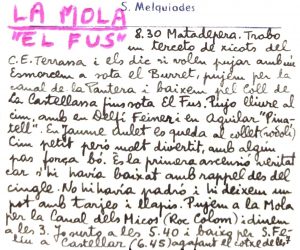 S. Melquiades
LA MOLA
"EL FUS"
8.30 Matadepera. Trobo
un terceto de xicots del
C.E. Terrassa i els dic si volen pujar amb mi
Esmorcem a sota el Burret, pujem per la
canal de la Pantera i baixem pel Coll de
La Castellana fins sota El Fus. Pujo lliure al
cim, amb en Delfi Feiner i en Aguilar "Pina-
tell". En Jaume Aulet es queda al collet (vèrtic)
Cim petit però molt divertit, amb algun
pas força bó. És la primera ascensió veritat
car s'hi havia baixat amb rappel des del
cingle. No hi havia padró i hi deixem un
pot amb tarjes i llapis. Pujem a la Mola
per la Canal dels Micos (Roc Colom) i dinem
a les 3. Jo surto a les 5.40 i baixo per S. Fe-
liu a Castellar (6.45) agafant el cotxe de les